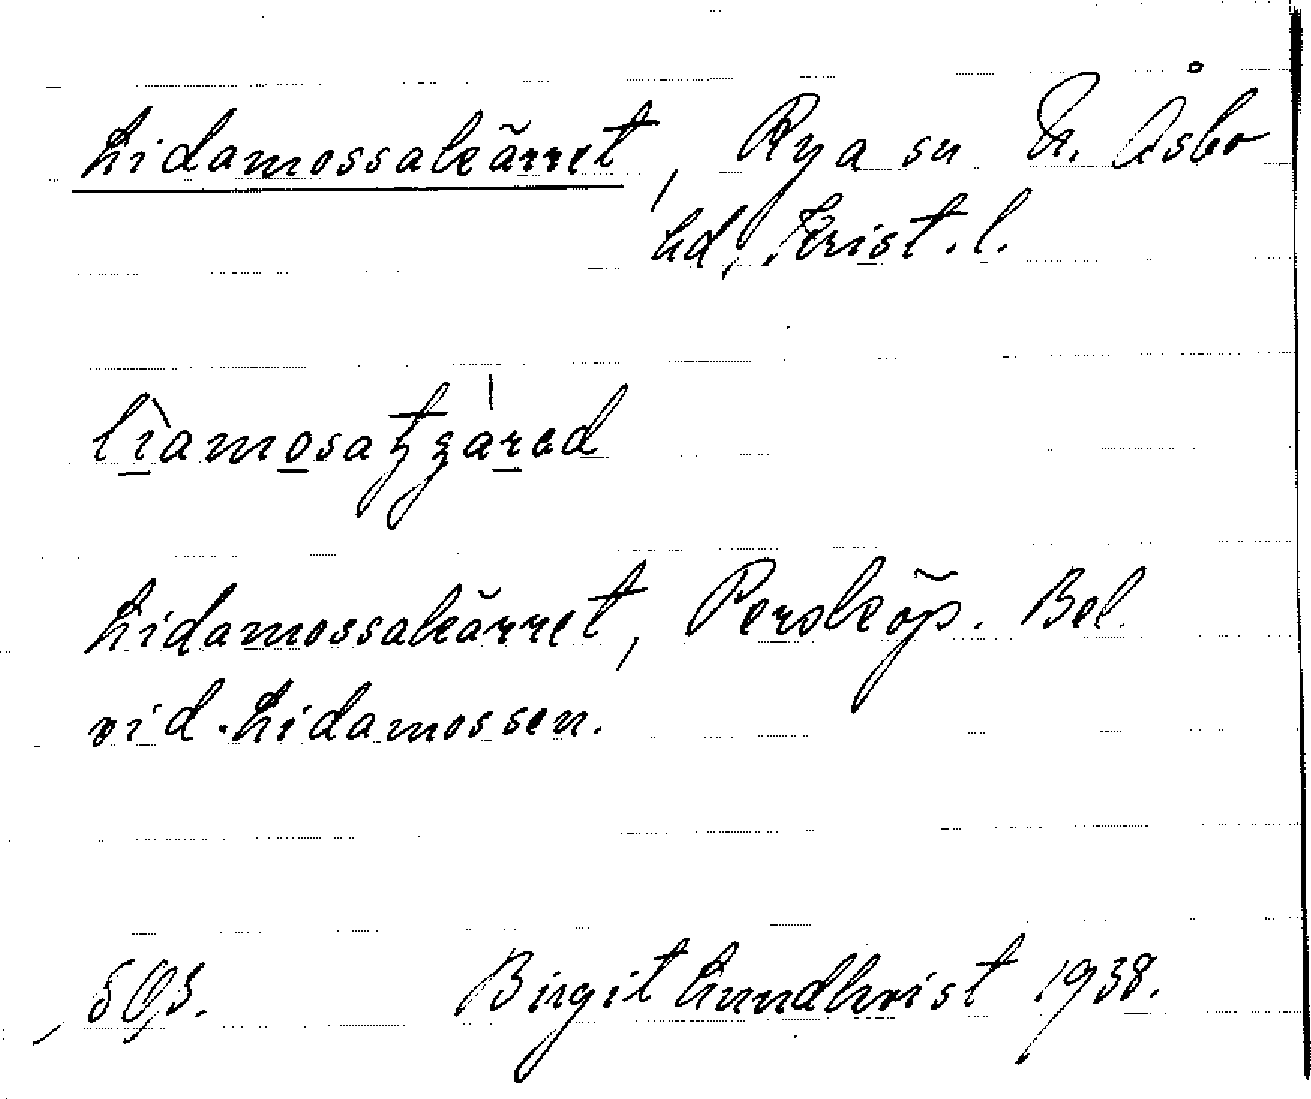 Lidamossakärret, Rya sn N. Åsbo
hd, Krist. l.
Lidamossakärret, Persköp. Bel.
vid Lidamossen.
Birgit Lundkvist 1938.